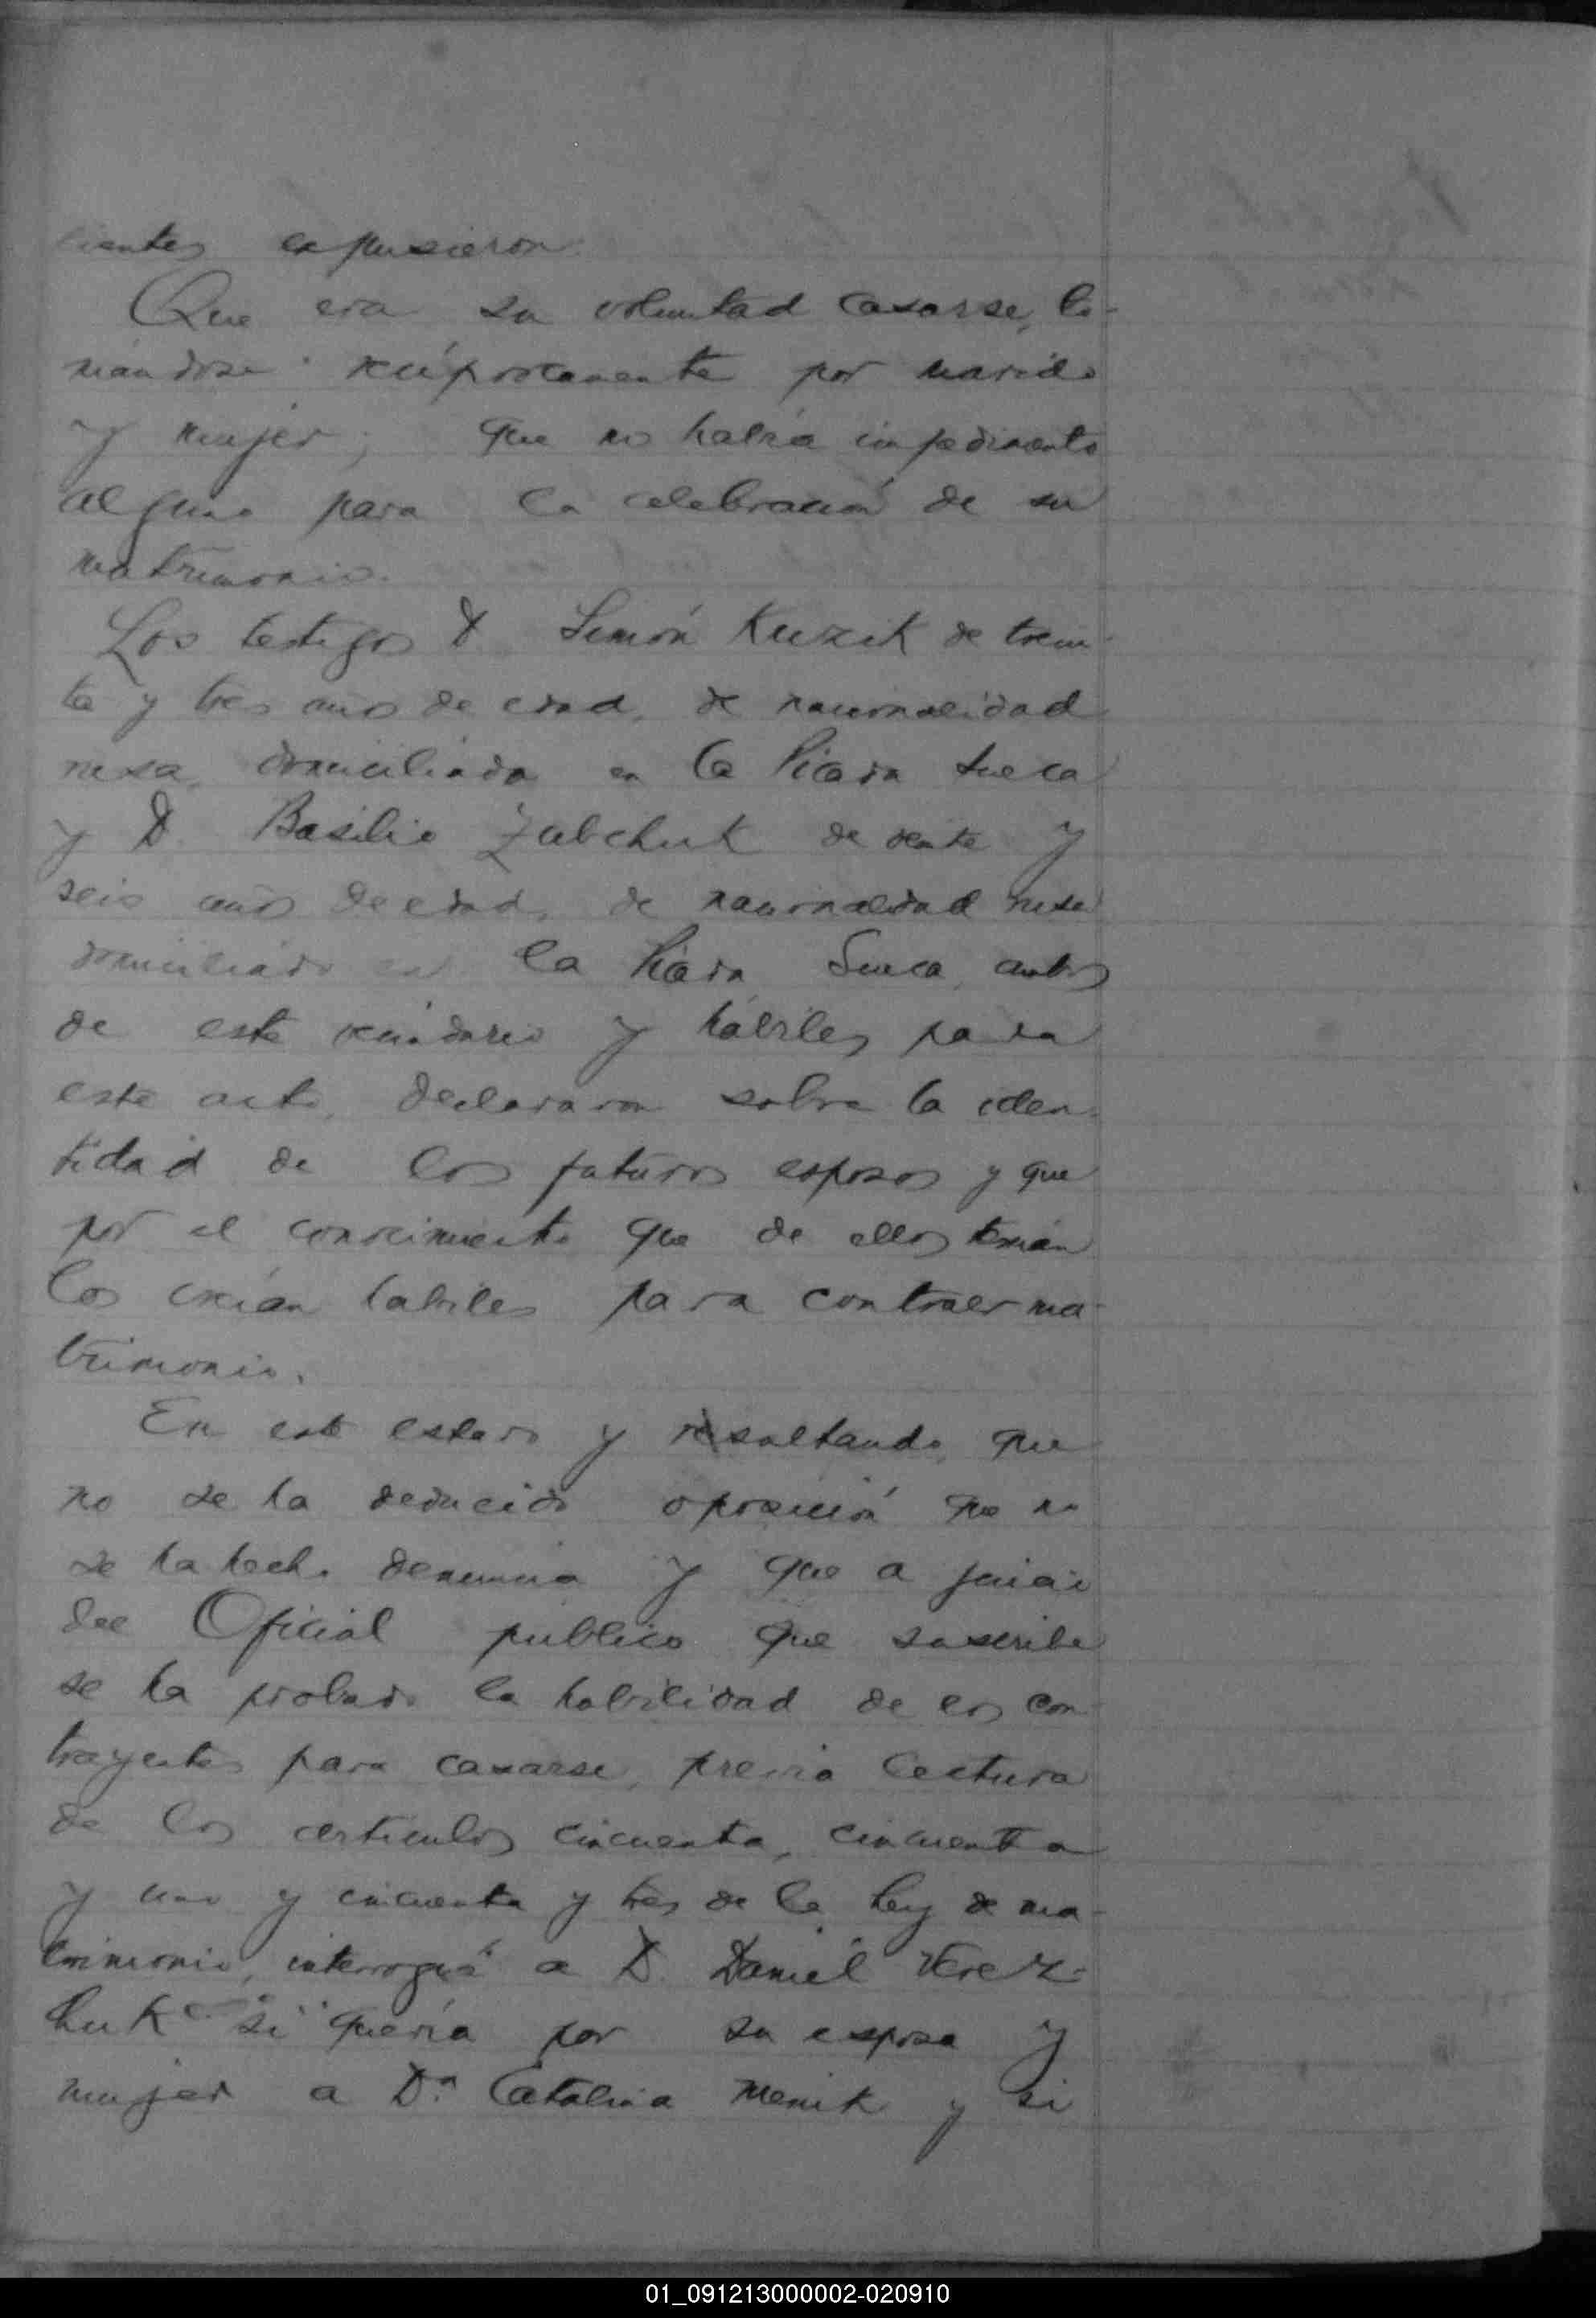 cientes expusieron:
Que era su voluntad casarse, to-
mándose recíprocamente por marido
y mujer; que no había impedimento
alguno para la celebración de su
matrimonio.
Los testigos D. Simón Kuzik de trein-
ta y tres años de edad, de nacionalidad
rusa, domiciliado en la Picada Sueca
y D. Basilio Zabchuk de veinte y
seis años de edad, de nacionalidad rusa
domiciliado en la Picada Sueca, ambos
de este vecindario y hábiles para
este acto, declararon sobre la iden-
tidad de los futuros esposos y que
por el conocimiento que de ellos tenían
los creían habiles para contraer ma-
trimonio.
En este estado y resultando, que
no se ha deducido oposición que no
se ha hecho denuncia y que a juicio
del Oficial publico que suscribe
se ha probado la habilidad de los con-
trayentes para casarse, previa lectura
de los articulos cincuenta, cincuenta
y uno y cincuenta y tres de la ley de ma-
trimonio, interrogué a D. Daniel
si quería por su esposa y
mujer a Dª Catalina Menik y si
01_091213000002-020910